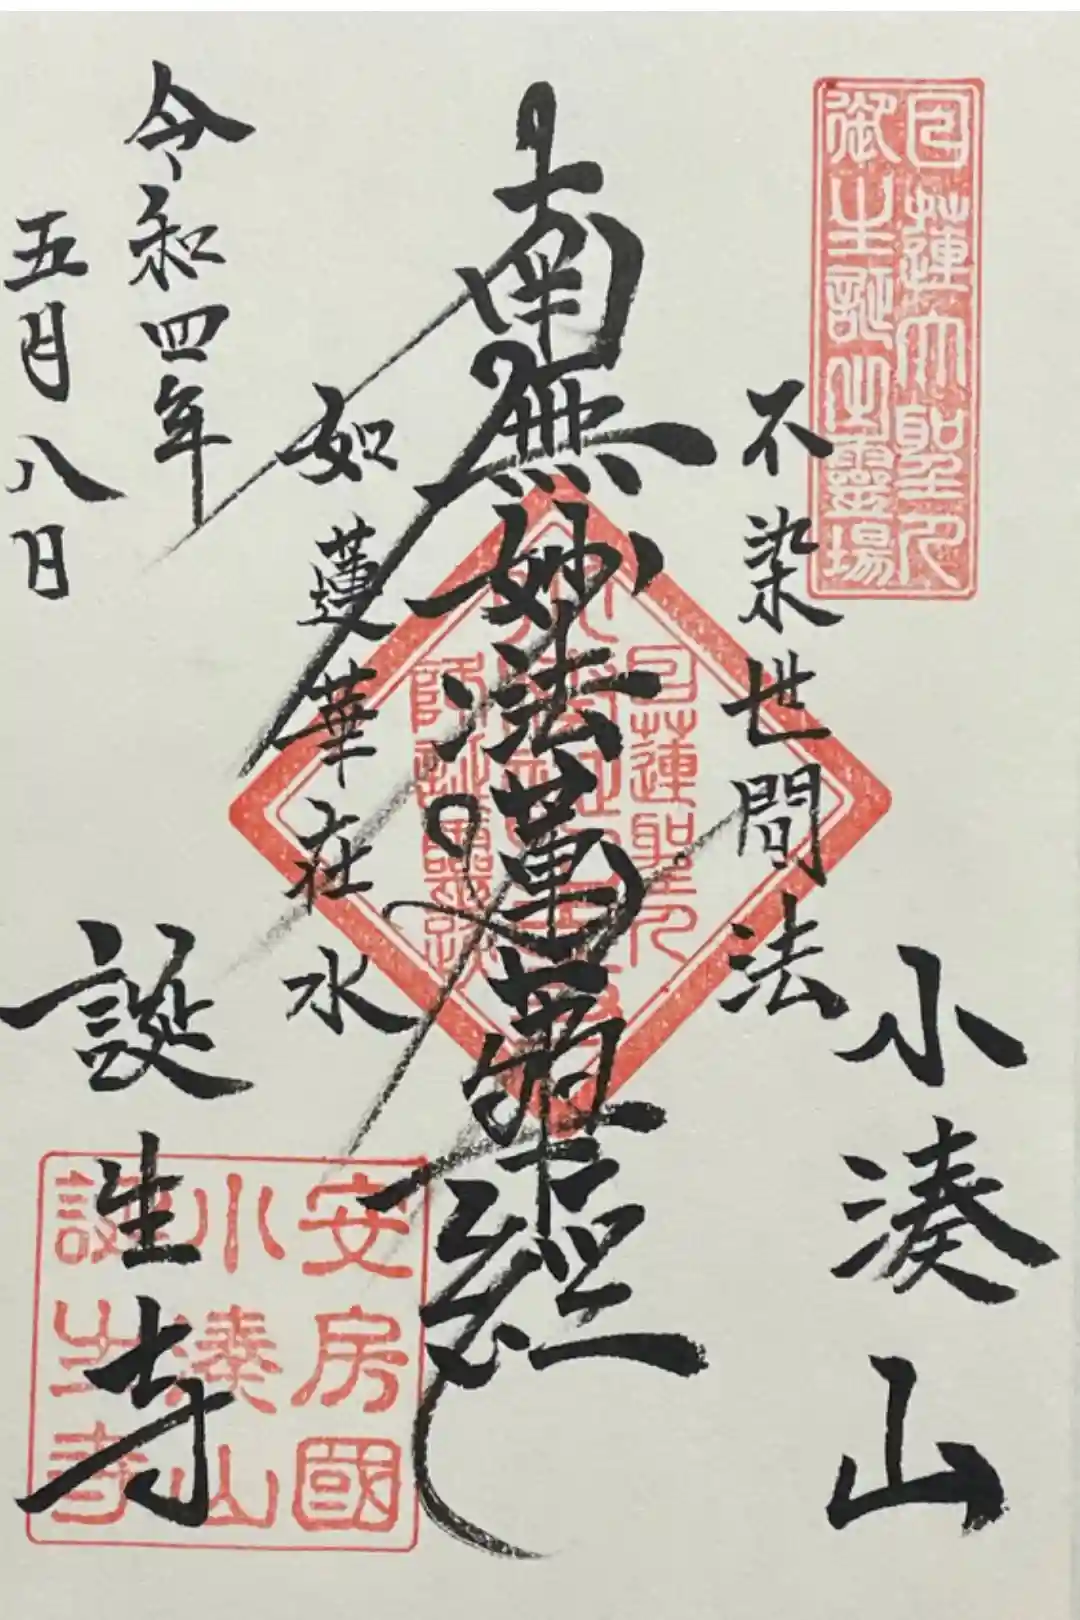 日蓮大聖人
御生誕之靈場
小湊山
不染世間法
南無妙法蓮華經
如蓮華在水
誕生寺
令和四年
五月八日
日蓮聖人
師跡靈跡
安房國
小湊山
誕生寺